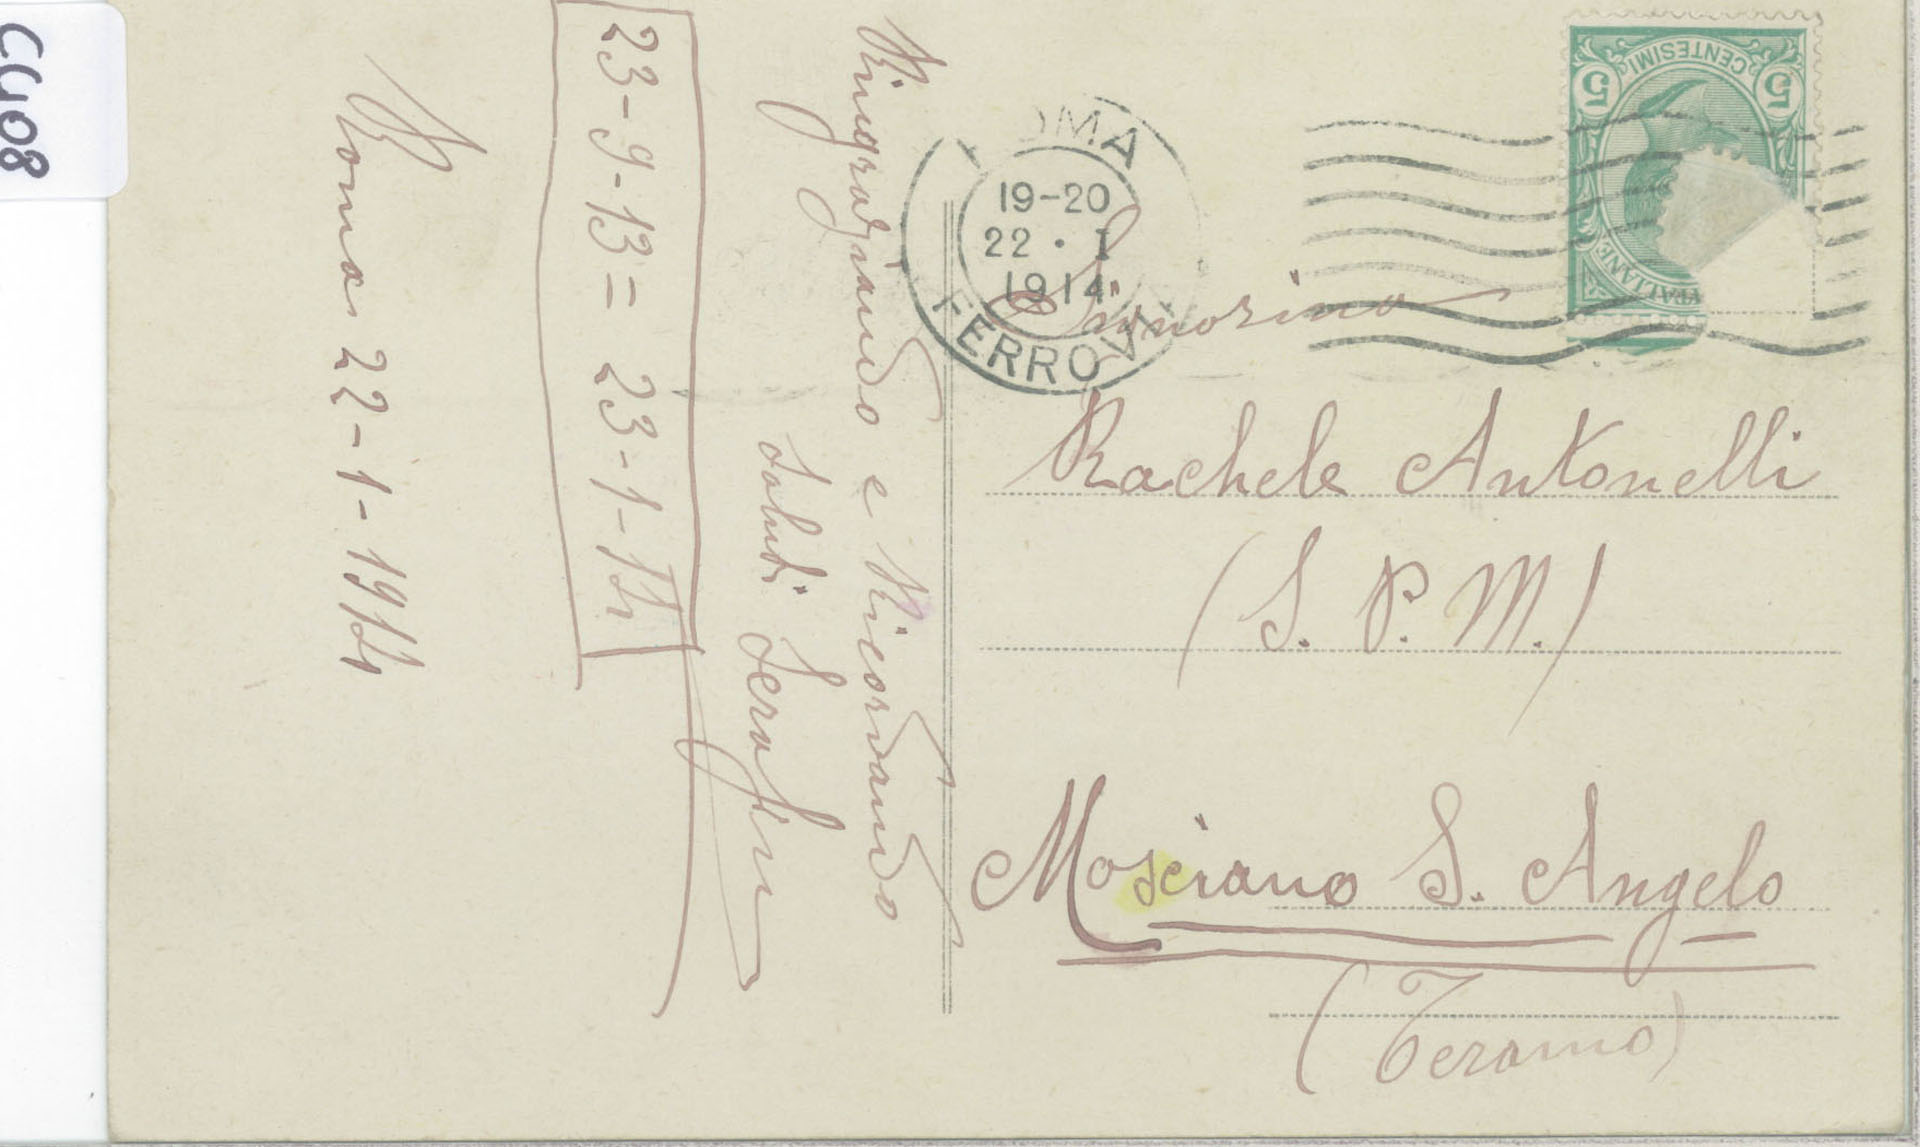 CU08
Roma 22-1-1914
23-9-13 = 23-1-14
Ringraziando e Ricordando
Saluti Serafini
ROMA
19-20
22 · I
1914
FERROVIA
5 CENTESIMI 5
ITALIANE
Signorina
Rachele Antonelli
(S. P. M.)
Mosciano S. Angelo
(Teramo)